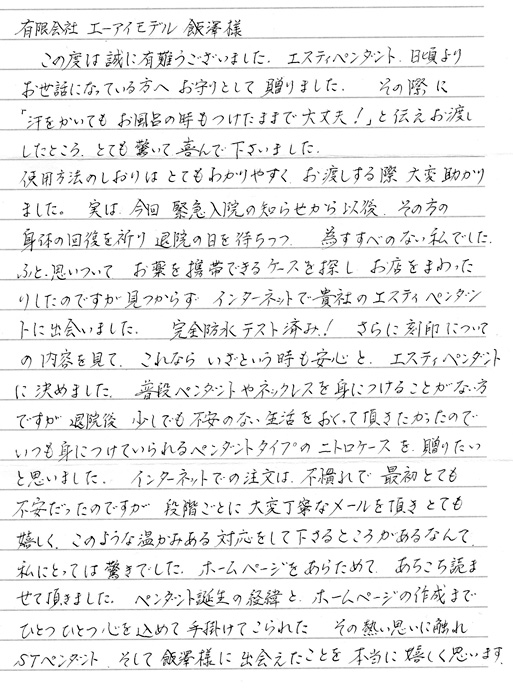 有限会社 エーアイモデル 飯澤様
この度は誠に有難うございました。エスティペンダント、日頃より
お世話になっている方へ お守りとして 贈りました。 その際に
「汗をかいても お風呂の時もつけたままで大丈夫！」と伝えお渡し
したところ、とても驚いて喜んで下さいました。
使用方法のしおりは とてもわかりやすく、お渡しする際 大変助かり
ました。 実は、今回 緊急入院の知らせから以後、その方の
身体の回復を祈り 退院の日を待ちつつ、 為すすべのない私でした。
ふと、思いついて お薬を携帯できるケースを探し お店をまわった
りしたのですが見つからず インターネットで貴社のエスティペンダン
トに出会いました。 完全防水テスト済み！ さらに刻印について
の内容を見て、これなら いざという時も安心と、エスティペンダント
に決めました。 普段ペンダントやネックレスを身につけることがない方
ですが 退院後 少しでも不安のない生活をおくって頂きたかったので
いつも身につけていられるペンダントタイプのニトロケースを、贈りたい
と思いました。 インターネットでの注文は、不慣れで 最初とても
不安だったのですが 段階ごとに 大変丁寧なメールを頂き とても
嬉しく、このような温かみある対応をして下さるところがあるなんて、
私にとっては驚きでした。ホームページをあらためて、あちこち読ま
せて頂きました。 ペンダント誕生の経緯と、ホームページの作成まで
ひとつひとつ心を込めて手掛けてこられた その熱い思いに触れ
STペンダント、そして飯澤様に出会えたことを 本当に嬉しく思います。